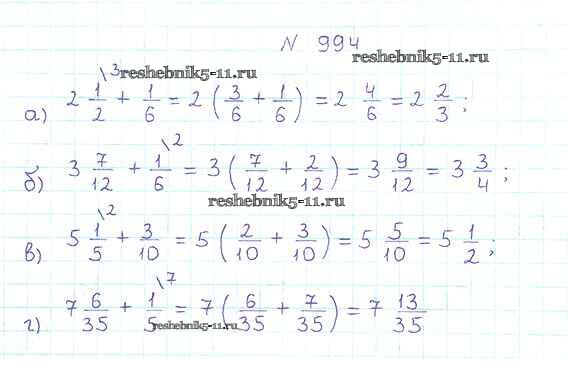 N 994
reshebnik5-11.ru
reshebnik5-11.ru
а) 2 1/2 \3 + 1/6 = 2 (3/6 + 1/6) = 2 4/6 = 2 2/3;
б) 3 7/12 + 1/6 \2 = 3 (7/12 + 2/12) = 3 9/12 = 3 3/4;
reshebnik5-11.ru
в) 5 1/5 \2 + 3/10 = 5 (2/10 + 3/10) = 5 5/10 = 5 1/2;
г) 7 6/35 + 1/5 \7 = 7 (6/35 + 7/35) = 7 13/35
reshebnik5-11.ru